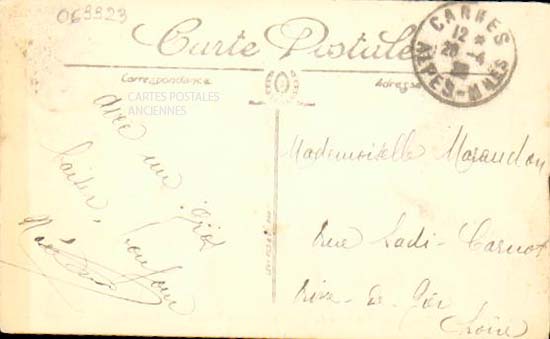 069923
Carte Postale
Correspondance
Adresse
CARTES POSTALES
ANCIENNES
CANNES
12 *
20 - 4
ALPES-MMES
avec un gros
baiser, bonjour
Mademoiselle Maraudon
Rue Sadi-Carnot
Rive-de-Gier
(Loire)